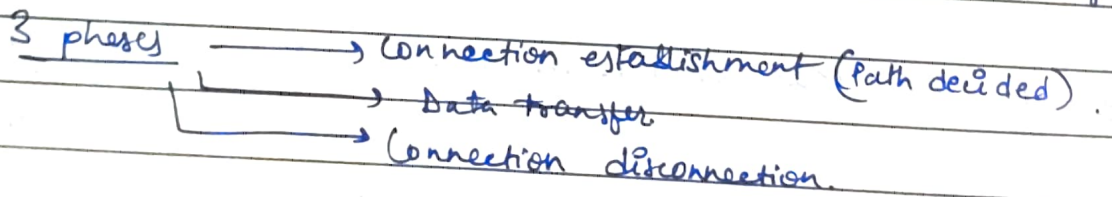 3 phases → Connection establishment (Path decided).
→ Data transfer
→ Connection disconnection.